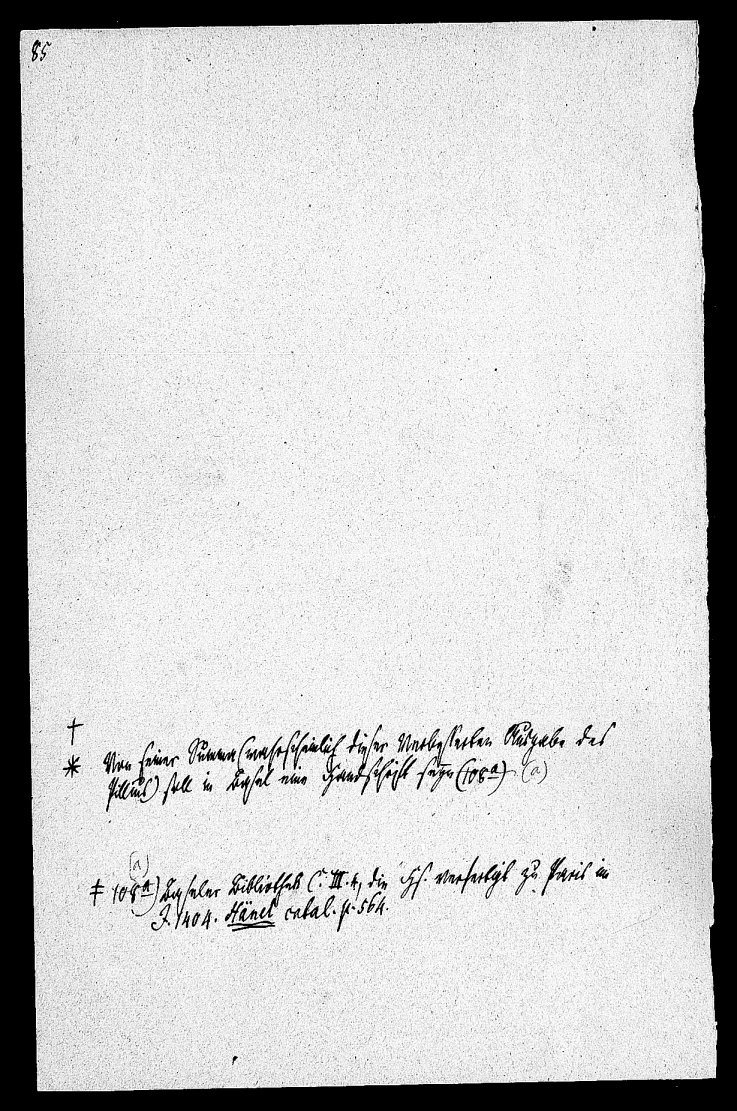 85
†
* Von seiner Summa (wahrscheinlich dieser verbesserten Ausgabe des
Pillius) soll in Basel eine Handschrift seyn (108a). (a)
(a)
‡ 108a) Baseler Bibliothek C. III. 4, die Hs. verfertigt zu Paris im
J. 1404. Hänel catal. p. 564.